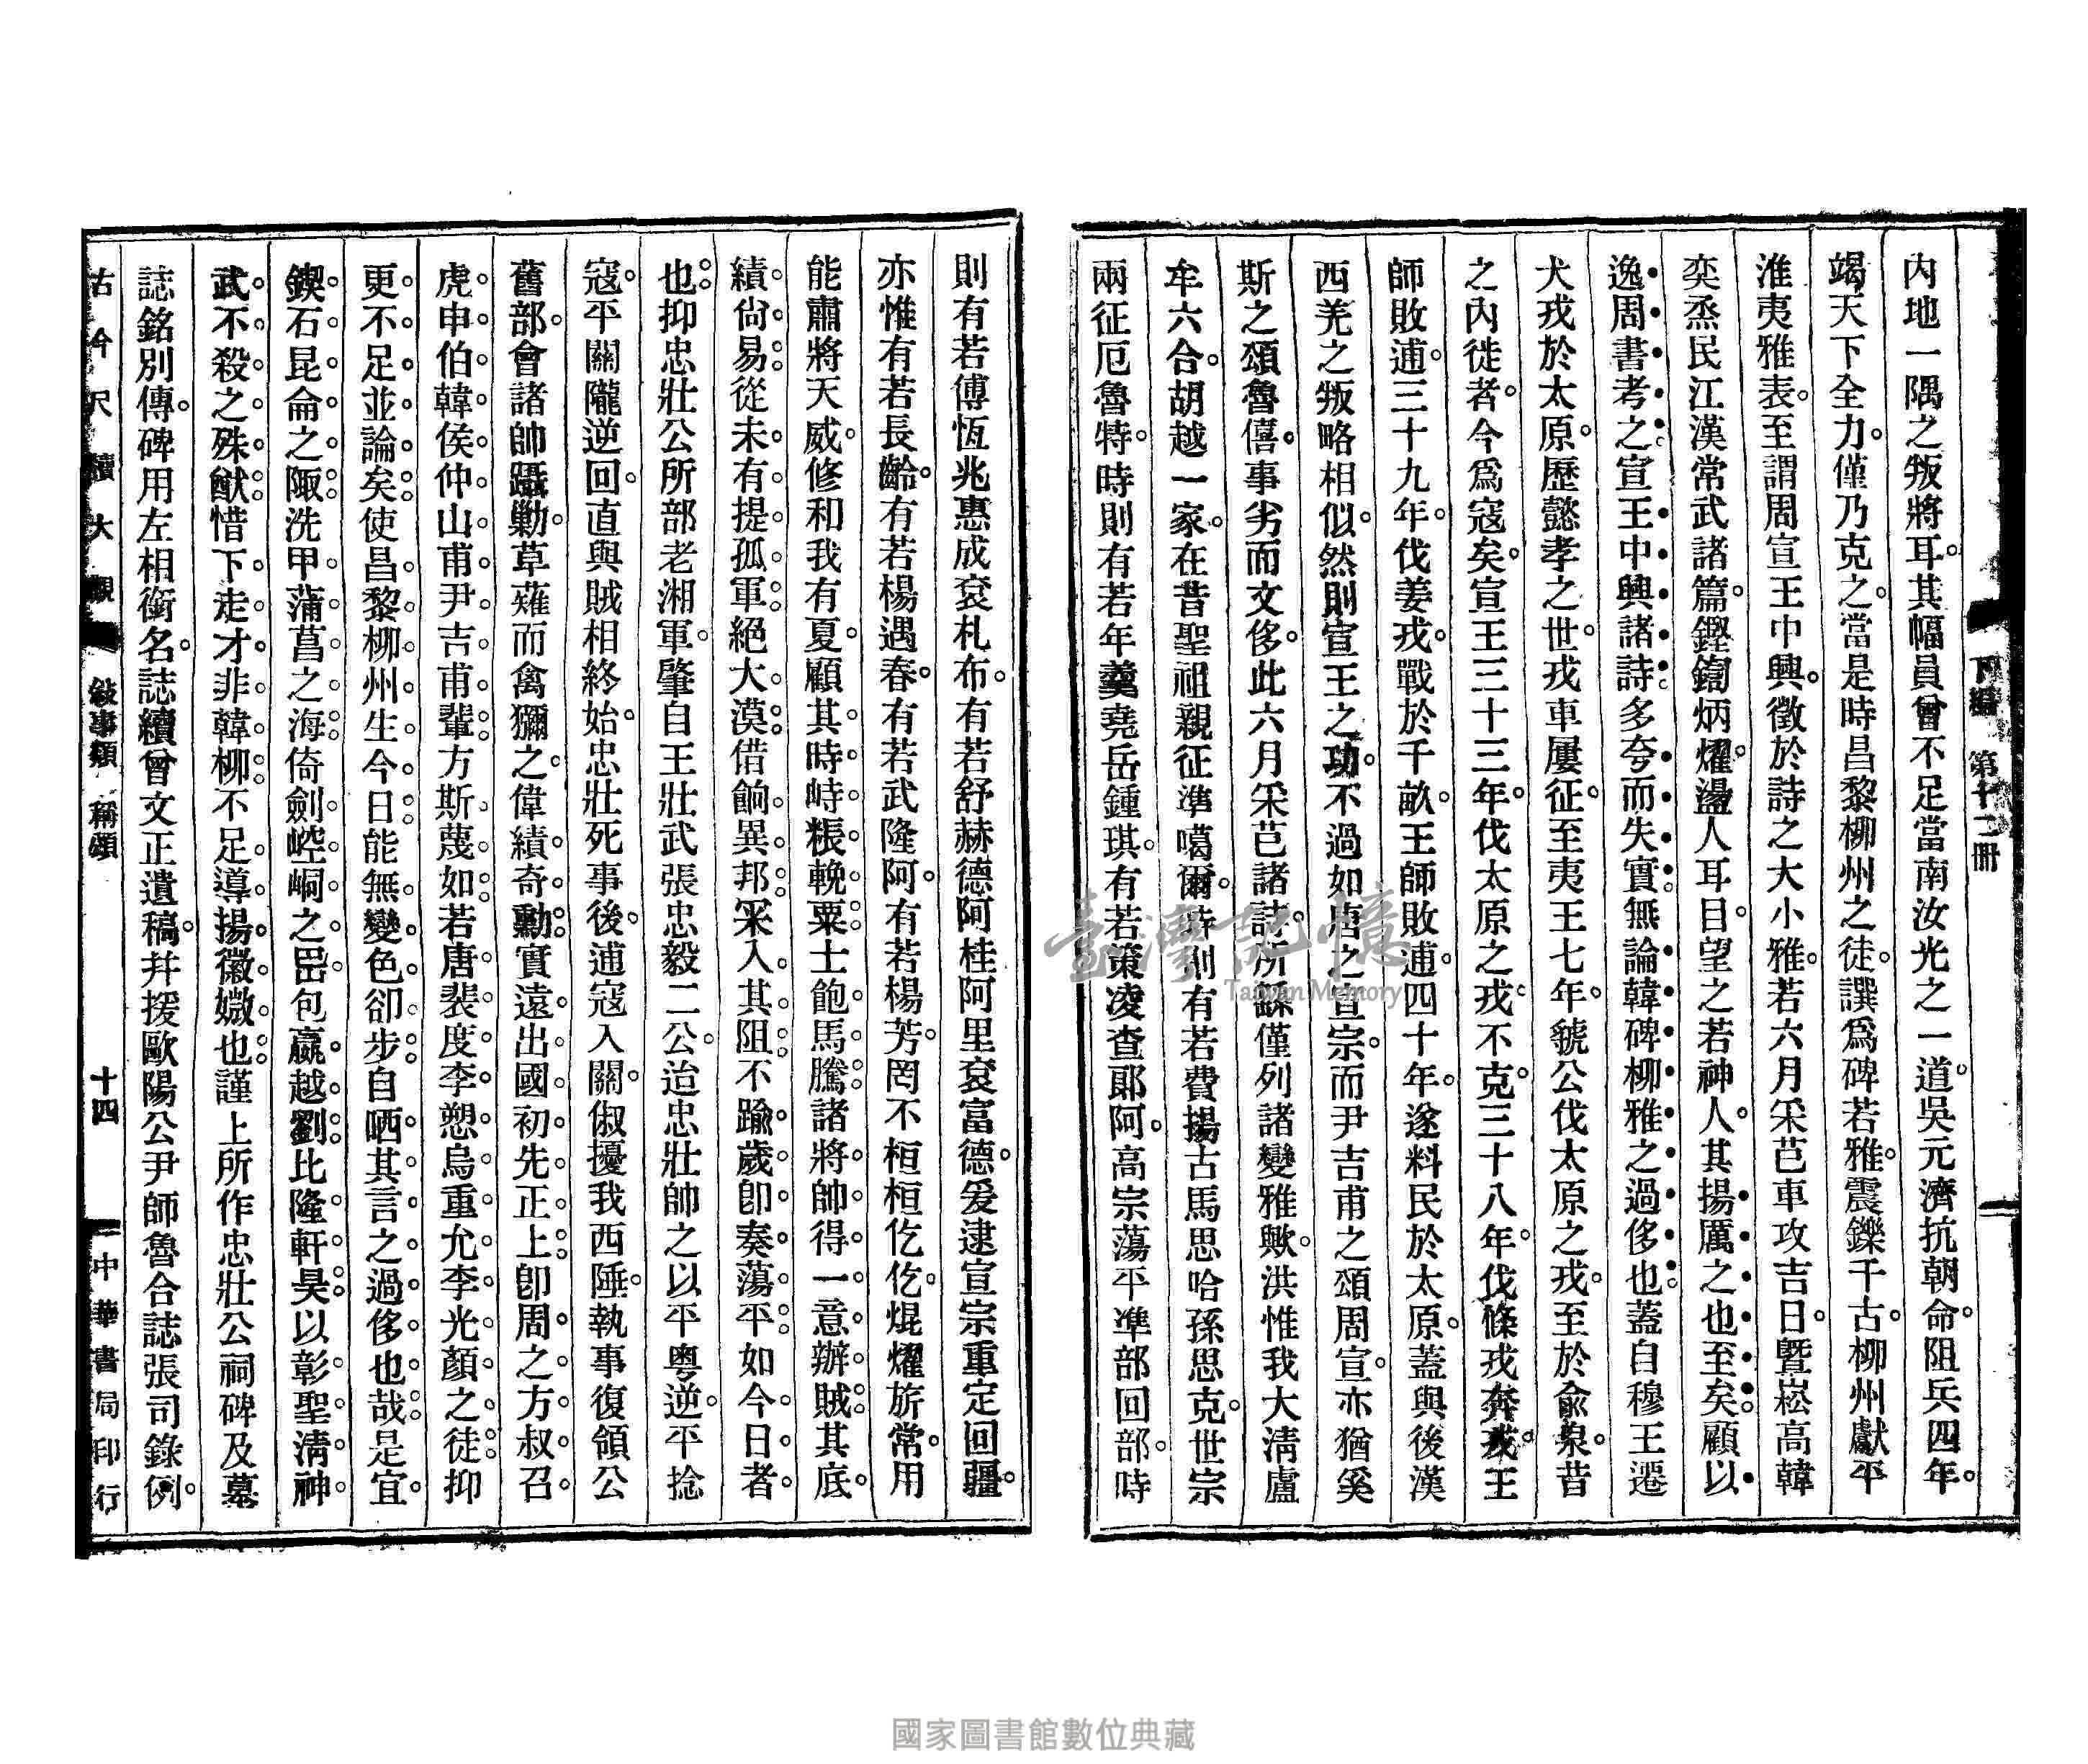 下編　第十二冊
內地一隅之叛將耳。其幅員曾不足當南汝光之一道。吳元濟抗朝命。阻兵四年。
竭天下全力。僅乃克之。當是時昌黎柳州之徒。譔爲碑若雅。震鑠千古。柳州獻平
淮夷雅表。至謂周宣王中興。徵於詩之大小雅。若六月采芑車攻吉日。曁崧高韓
奕烝民江漢常武諸篇。鏗鍧炳燿。盪人耳目。望之若神人。其揚厲之也至矣。顧以
逸周書考之。宣王中興諸詩。多夸而失實。無論韓碑柳雅之過侈也。蓋自穆王遷
犬戎於太原。歷懿孝之世。戎車屢征。至夷王七年。虢公伐太原之戎。至於俞泉。昔
之內徙者。今爲寇矣。宣王三十三年。伐太原之戎。不克。三十八年。伐條戎奔戎。王
師敗逋。三十九年。伐姜戎。戰於千畝。王師敗逋。四十年。遂料民於太原。蓋與後漢
西羌之叛略相似。然則宣王之功。不過如唐之宣宗。而尹吉甫之頌周宣。亦猶奚
斯之頌魯僖。事劣而文侈。此六月采芑諸詩。所繇僅列諸變雅歟。洪惟我大淸盧
牟六合。胡越一家。在昔聖祖親征準噶爾。時則有若費揚古馬思哈孫思克。世宗
兩征厄魯特。時則有若年羹堯岳鍾琪。有若策凌查郞阿。高宗蕩平準部回部。時
則有若傅恆兆惠成衮札布。有若舒赫德阿桂阿里衮富德。爰逮宣宗重定回疆。
亦惟有若長齡。有若楊遇春。有若武隆阿。有若楊芳。罔不桓桓仡仡。焜燿旂常。用
能肅將天威。修和我有夏。顧其時峙粻輓粟。士飽馬騰。諸將帥得一意辦賊。其底
績尙易。從未有提孤軍。絕大漠。借餉異邦。罙入其阻。不踰歲卽奏蕩平。如今日者
也。抑忠壯公所部老湘軍。肇自王壯武張忠毅二公。迨忠壯帥之以平粵逆。平捻
寇。平關隴逆回。直與賊相終始。忠壯死事後。逋寇入關。俶擾我西陲。執事復領公
舊部。會諸帥躡勦。草薙而禽獮之。偉績奇勳。實遠出國初先正上。卽周之方叔召
虎申伯韓侯仲山甫尹吉甫輩。方斯蔑如。若唐裴度李愬烏重允李光顏之徒。抑
更不足並論矣。使昌黎柳州生今日。能無變色卻步。自哂其言之過侈也哉。是宜
鍥石昆侖之陬。洗甲蒲菖之海。倚劍崆峒之岊。包嬴越劉。比隆軒昊。以彰聖淸神
武不殺之殊猷。惜下走才非韓柳。不足導揚徽媺也。謹上所作忠壯公祠碑及墓
誌銘別傳。碑用左相銜名。誌續曾文正遺稿。幷援歐陽公尹師魯合誌張司錄例。
古今尺牘大觀　敍事類　稱頌　十四　中華書局印行
臺灣記憶
Taiwan Memory
國家圖書館數位典藏